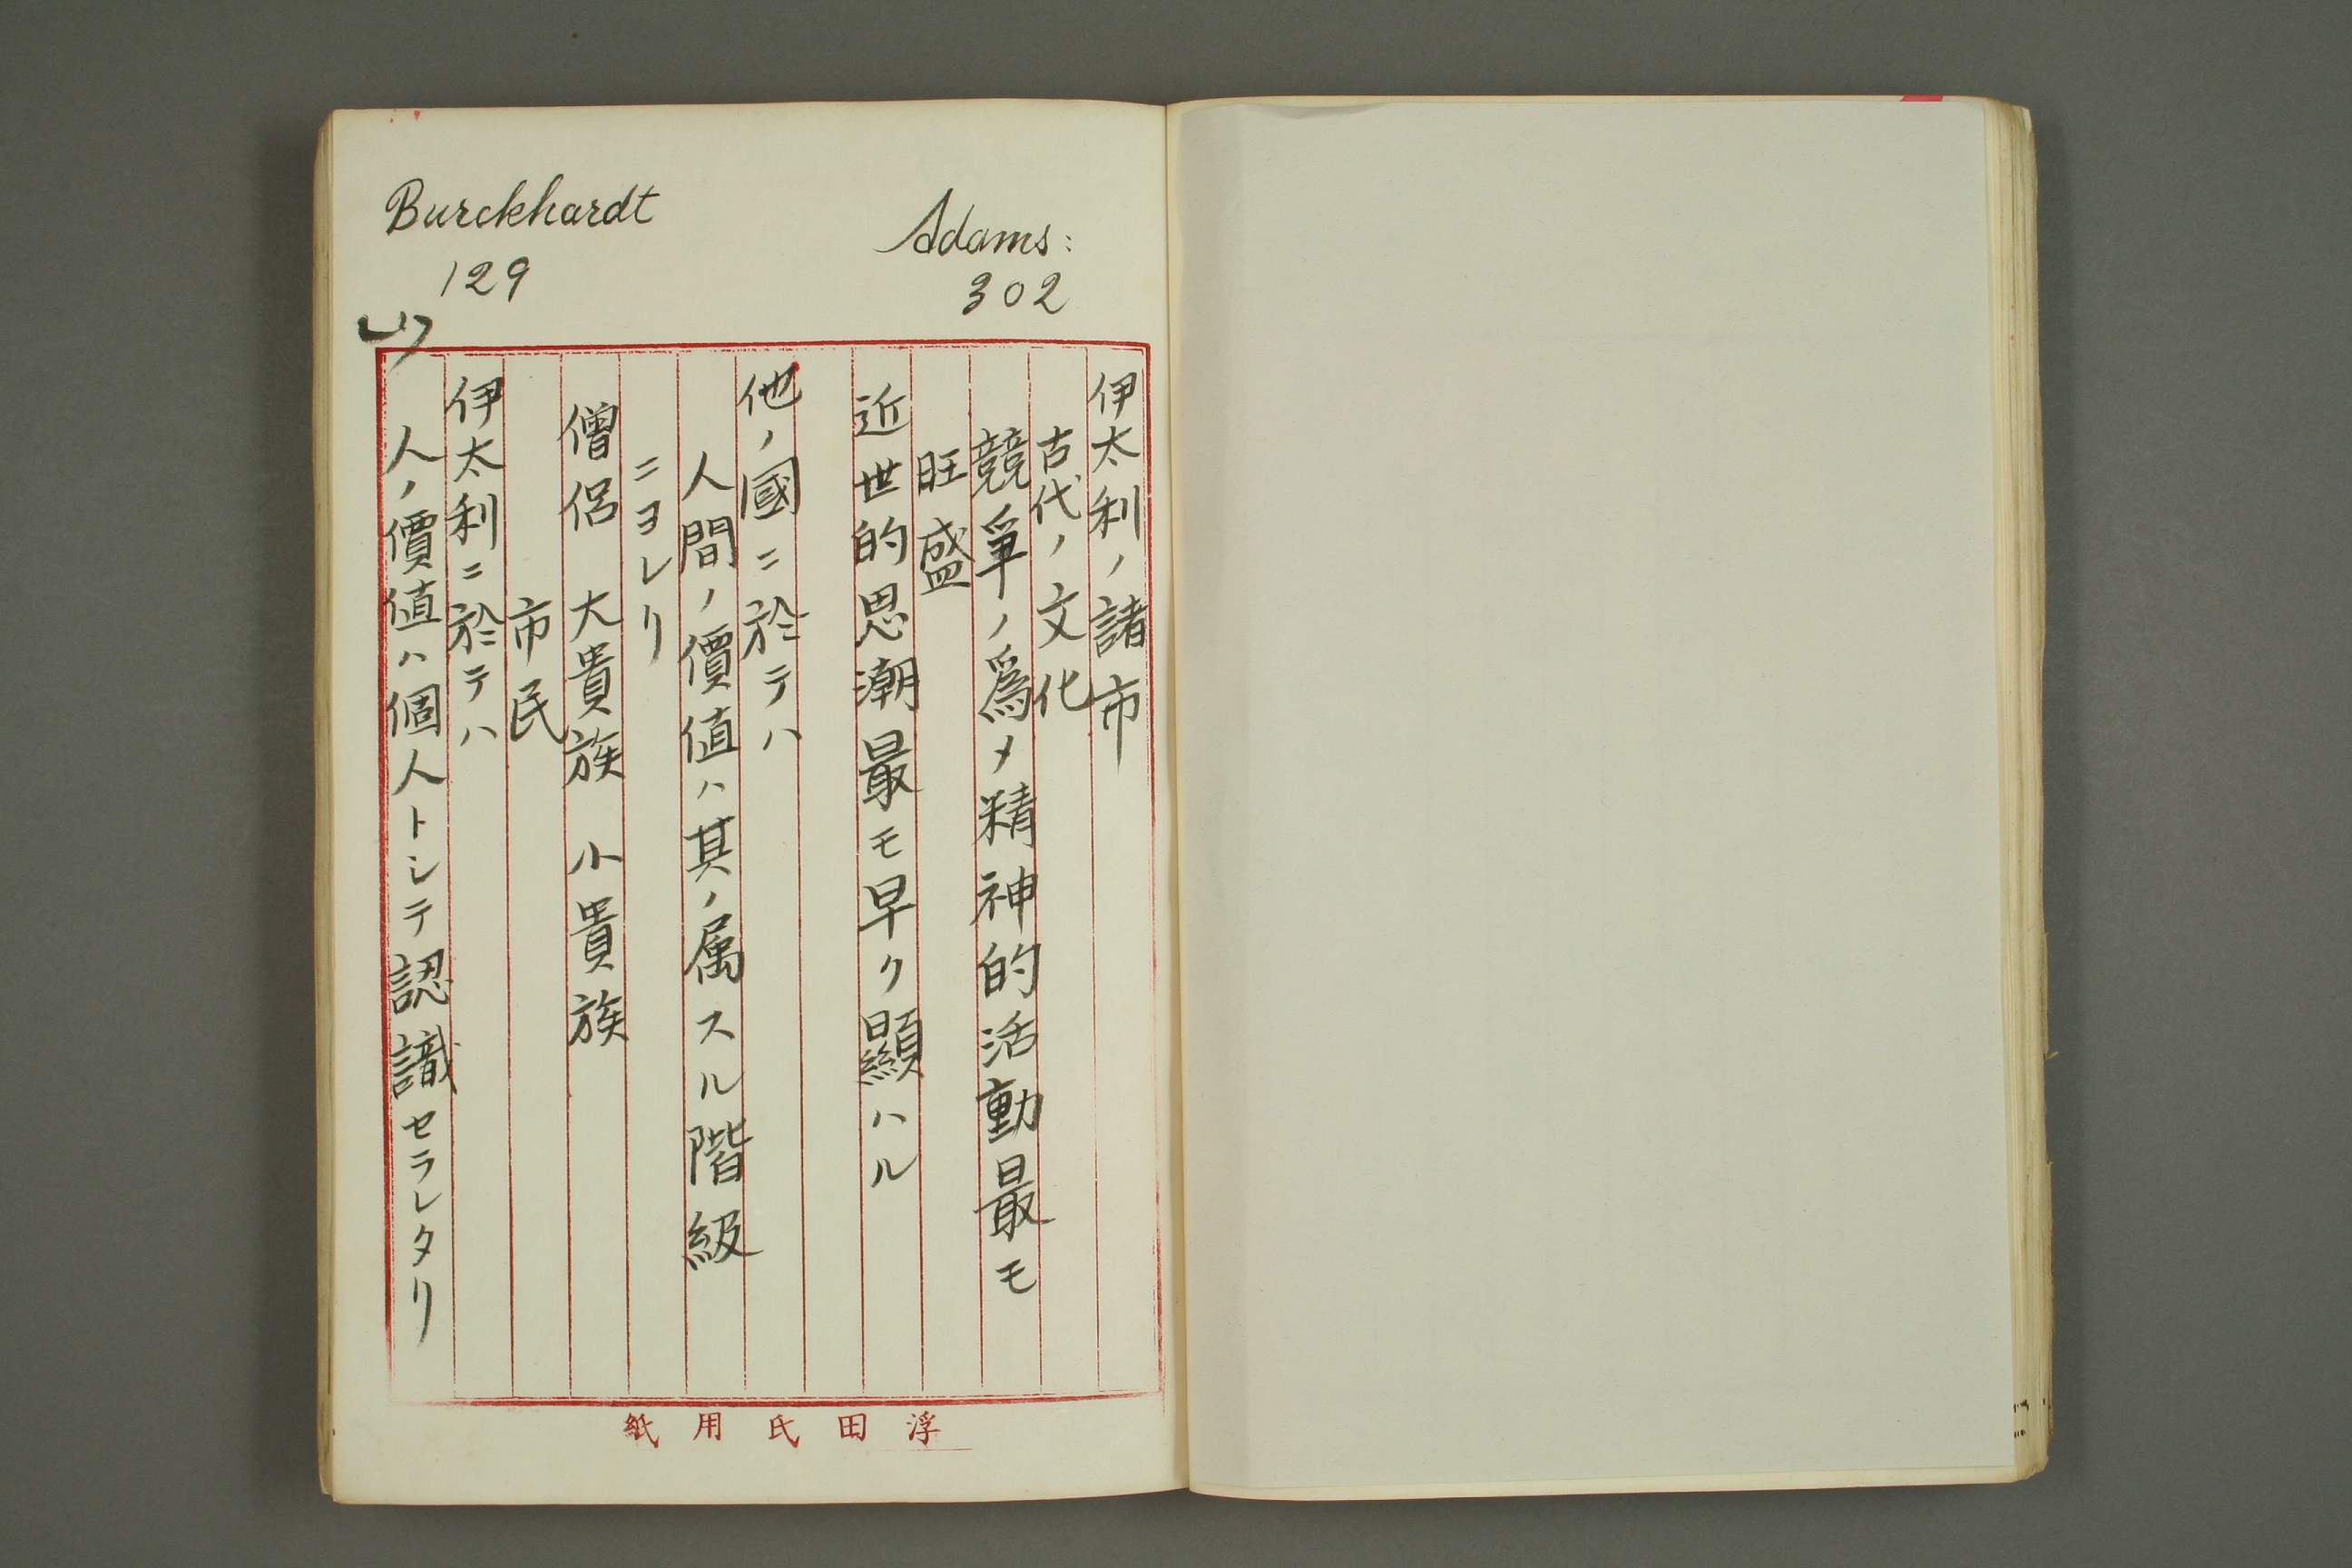 Adams:
302
Burckhardt
129
伊太利ノ諸市
古代ノ文化
競爭ノ爲メ精神的活動最モ
旺盛
近世的思潮最モ早ク顯ハル
他ノ國ニ於テハ
人間ノ價値ハ其ノ属スル階級
ニヨレリ
僧侶 大貴族 小貴族
市民
伊太利ニ於テハ
人ノ價値ハ個人トシテ認識セラレタリ
浮田氏用紙